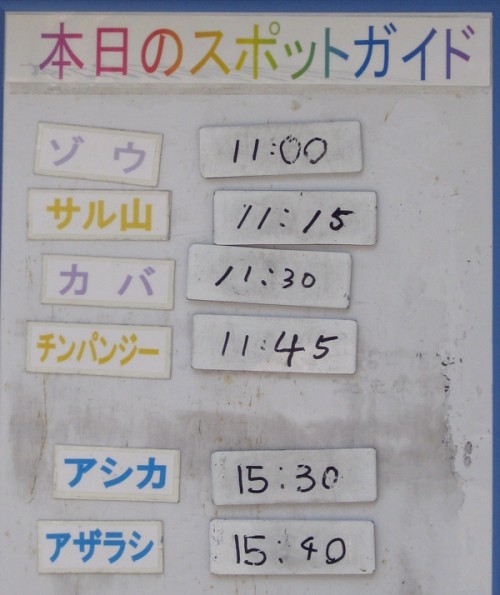 本日のスポットガイド
ゾウ 11:00
サル山 11:15
カバ 11:30
チンパンジー 11:45
アシカ 15:30
アザラシ 15:40